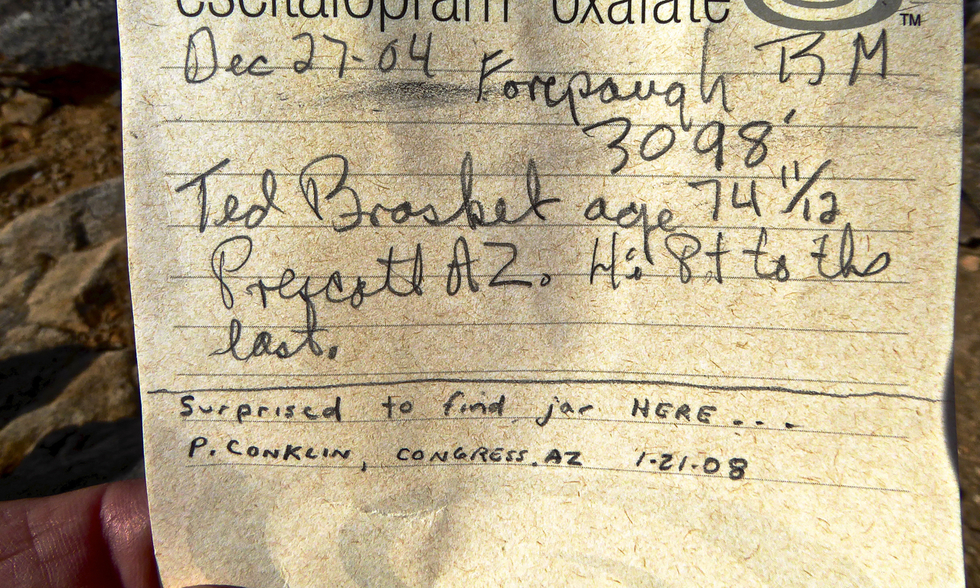 escitalopram oxalate ™
Dec 27-04 Forepaugh BM
3098'
Ted Brasket age 74 11/12
Prescott AZ. Hi Pt to ths
last.
Surprised to find jar HERE...
P. CONKLIN, CONGRESS, AZ 1-21-08